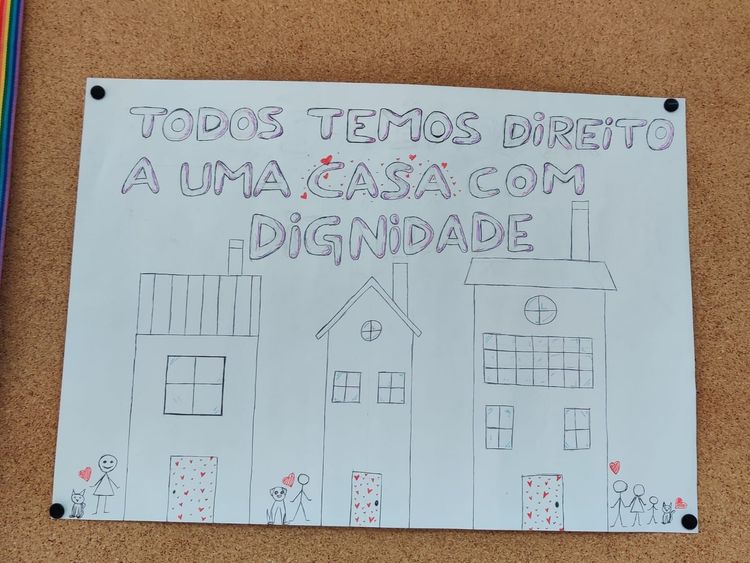 TODOS TEMOS DIREITO
A UMA CASA COM
DIGNIDADE